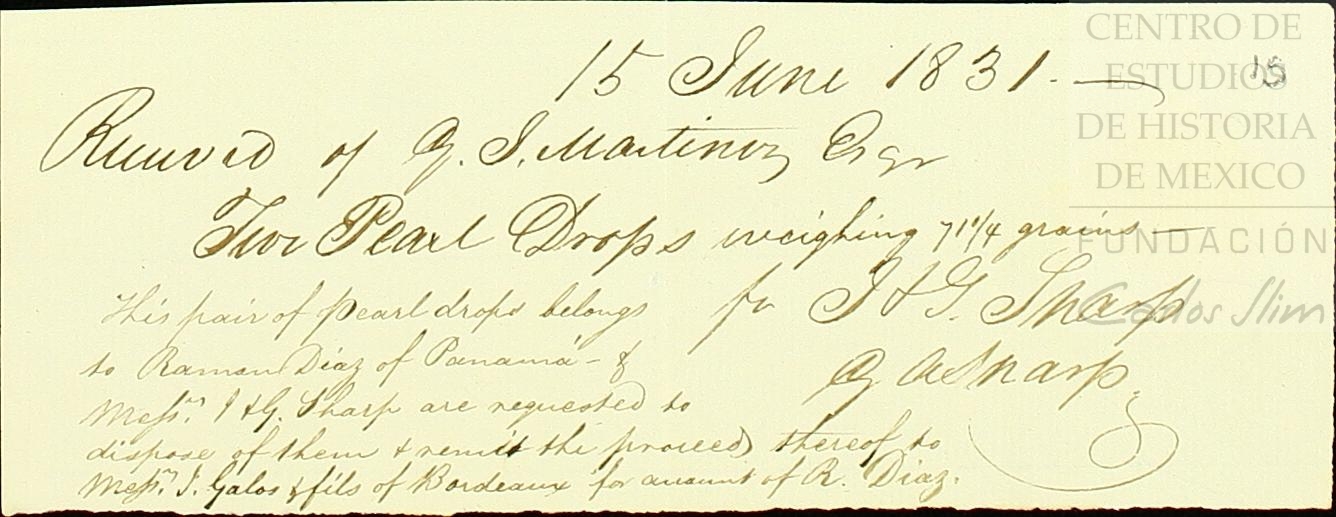 15 June 1831.—
15
Received of G. J. Martinez Esqr
Two Pearl Drops weighing 71 1/4 grains —
for J & G. Sharp
G A Sharp
This pair of pearl drops belongs
to Ramon Diaz of Panamá - &
Messrs. J & G. Sharp are requested to
dispose of them & remit the proceeds thereof to
Messrs. J. Galos & fils of Bordeaux for amount of R. Diaz.
CENTRO DE
ESTUDIOS
DE HISTORIA
DE MEXICO
FUNDACIÓN
Carlos Slim